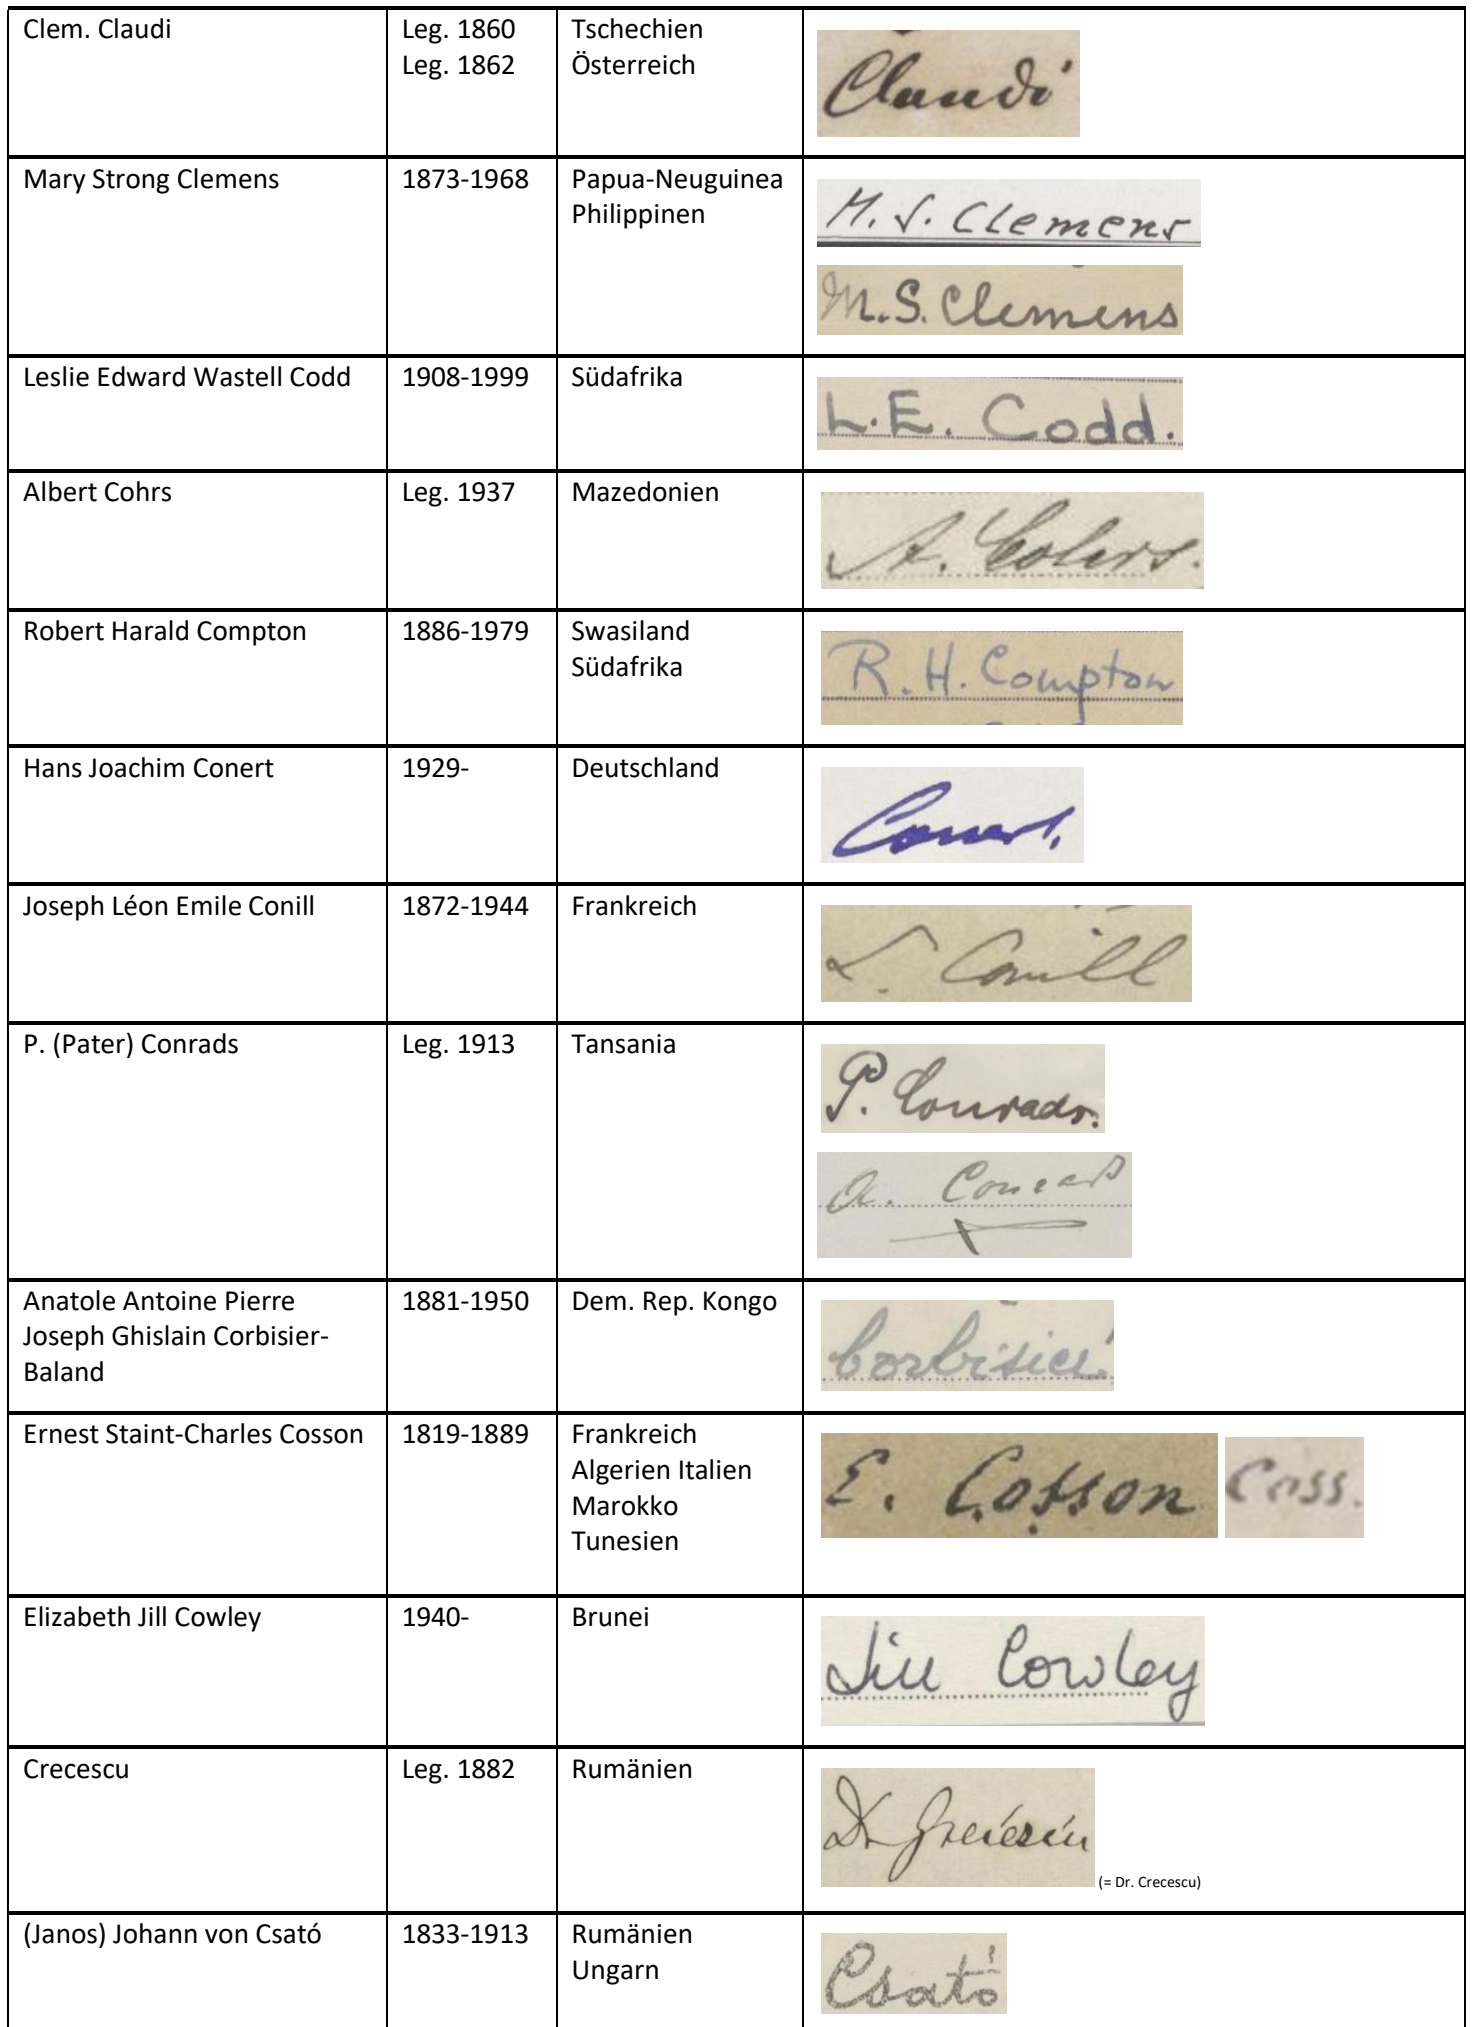 Clem. Claudi Leg. 1860 Tschechien
Leg. 1862 Österreich
Claudi
Mary Strong Clemens 1873-1968 Papua-Neuguinea
Philippinen
M. S. Clemens
M. S. Clemens
Leslie Edward Wastell Codd 1908-1999 Südafrika
L. E. Codd.
Albert Cohrs Leg. 1937 Mazedonien
A. Cohrs.
Robert Harald Compton 1886-1979 Swasiland
Südafrika
R. H. Compton
Hans Joachim Conert 1929- Deutschland
Conert.
Joseph Léon Emile Conill 1872-1944 Frankreich
L. Conill
P. (Pater) Conrads Leg. 1913 Tansania
P. Conrads.
a. Conrads
Anatole Antoine Pierre 1881-1950 Dem. Rep. Kongo
Joseph Ghislain Corbisier-
Baland
Corbisier
Ernest Staint-Charles Cosson 1819-1889 Frankreich
Algerien Italien
Marokko
Tunesien
E. Cosson Coss.
Elizabeth Jill Cowley 1940- Brunei
Jill Cowley
Crecescu Leg. 1882 Rumänien
Dr
(= Dr. Crecescu)
(Janos) Johann von Csató 1833-1913 Rumänien
Ungarn
Csató